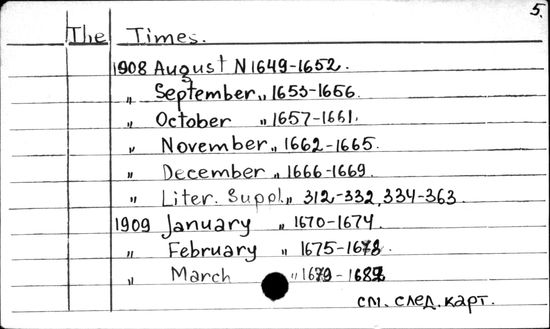 5.
The Times.
1908 August N 1649-1652.
„ September „ 1653-1656.
„ October „ 1657-1661.
„ November „ 1662-1665.
„ December „ 1666-1669.
„ Liter. Suppl. „ 312-332, 334-363
1909 January „ 1670-1674.
„ February „ 1675-1678.
„ March „ 1679-1682
см. след. карт.